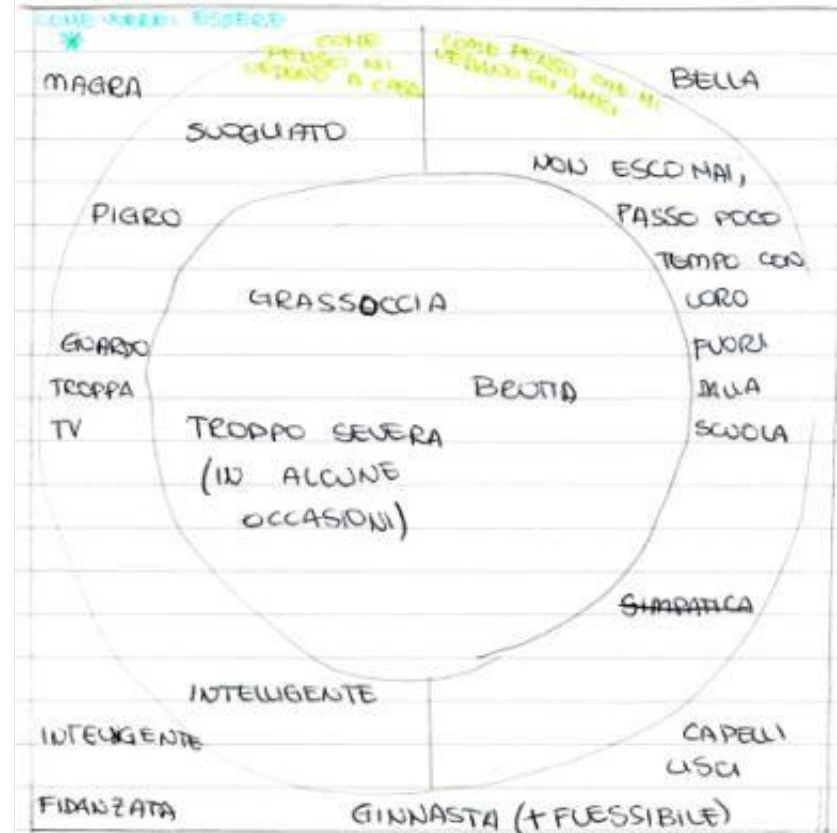 COME VORREI ESSERE
*
COME
PENSO MI
VEDANO A CASA
COME PENSO CHE MI
VEDANO GLI AMICI
MAGRA
BELLA
SVOGLIATO
NON ESCO MAI,
PIGRO
PASSO POCO
TEMPO CON
GRASSOCCIA
LORO
GUARDO
FUORI
TROPPA
BRUTTA
DALLA
TV
TROPPO SEVERA
SCUOLA
(IN ALCUNE
OCCASIONI)
SIMPATICA
INTELLIGENTE
INTELIGENTE
CAPELLI
LISCI
FIDANZATA
GINNASTA (+ FLESSIBILE)